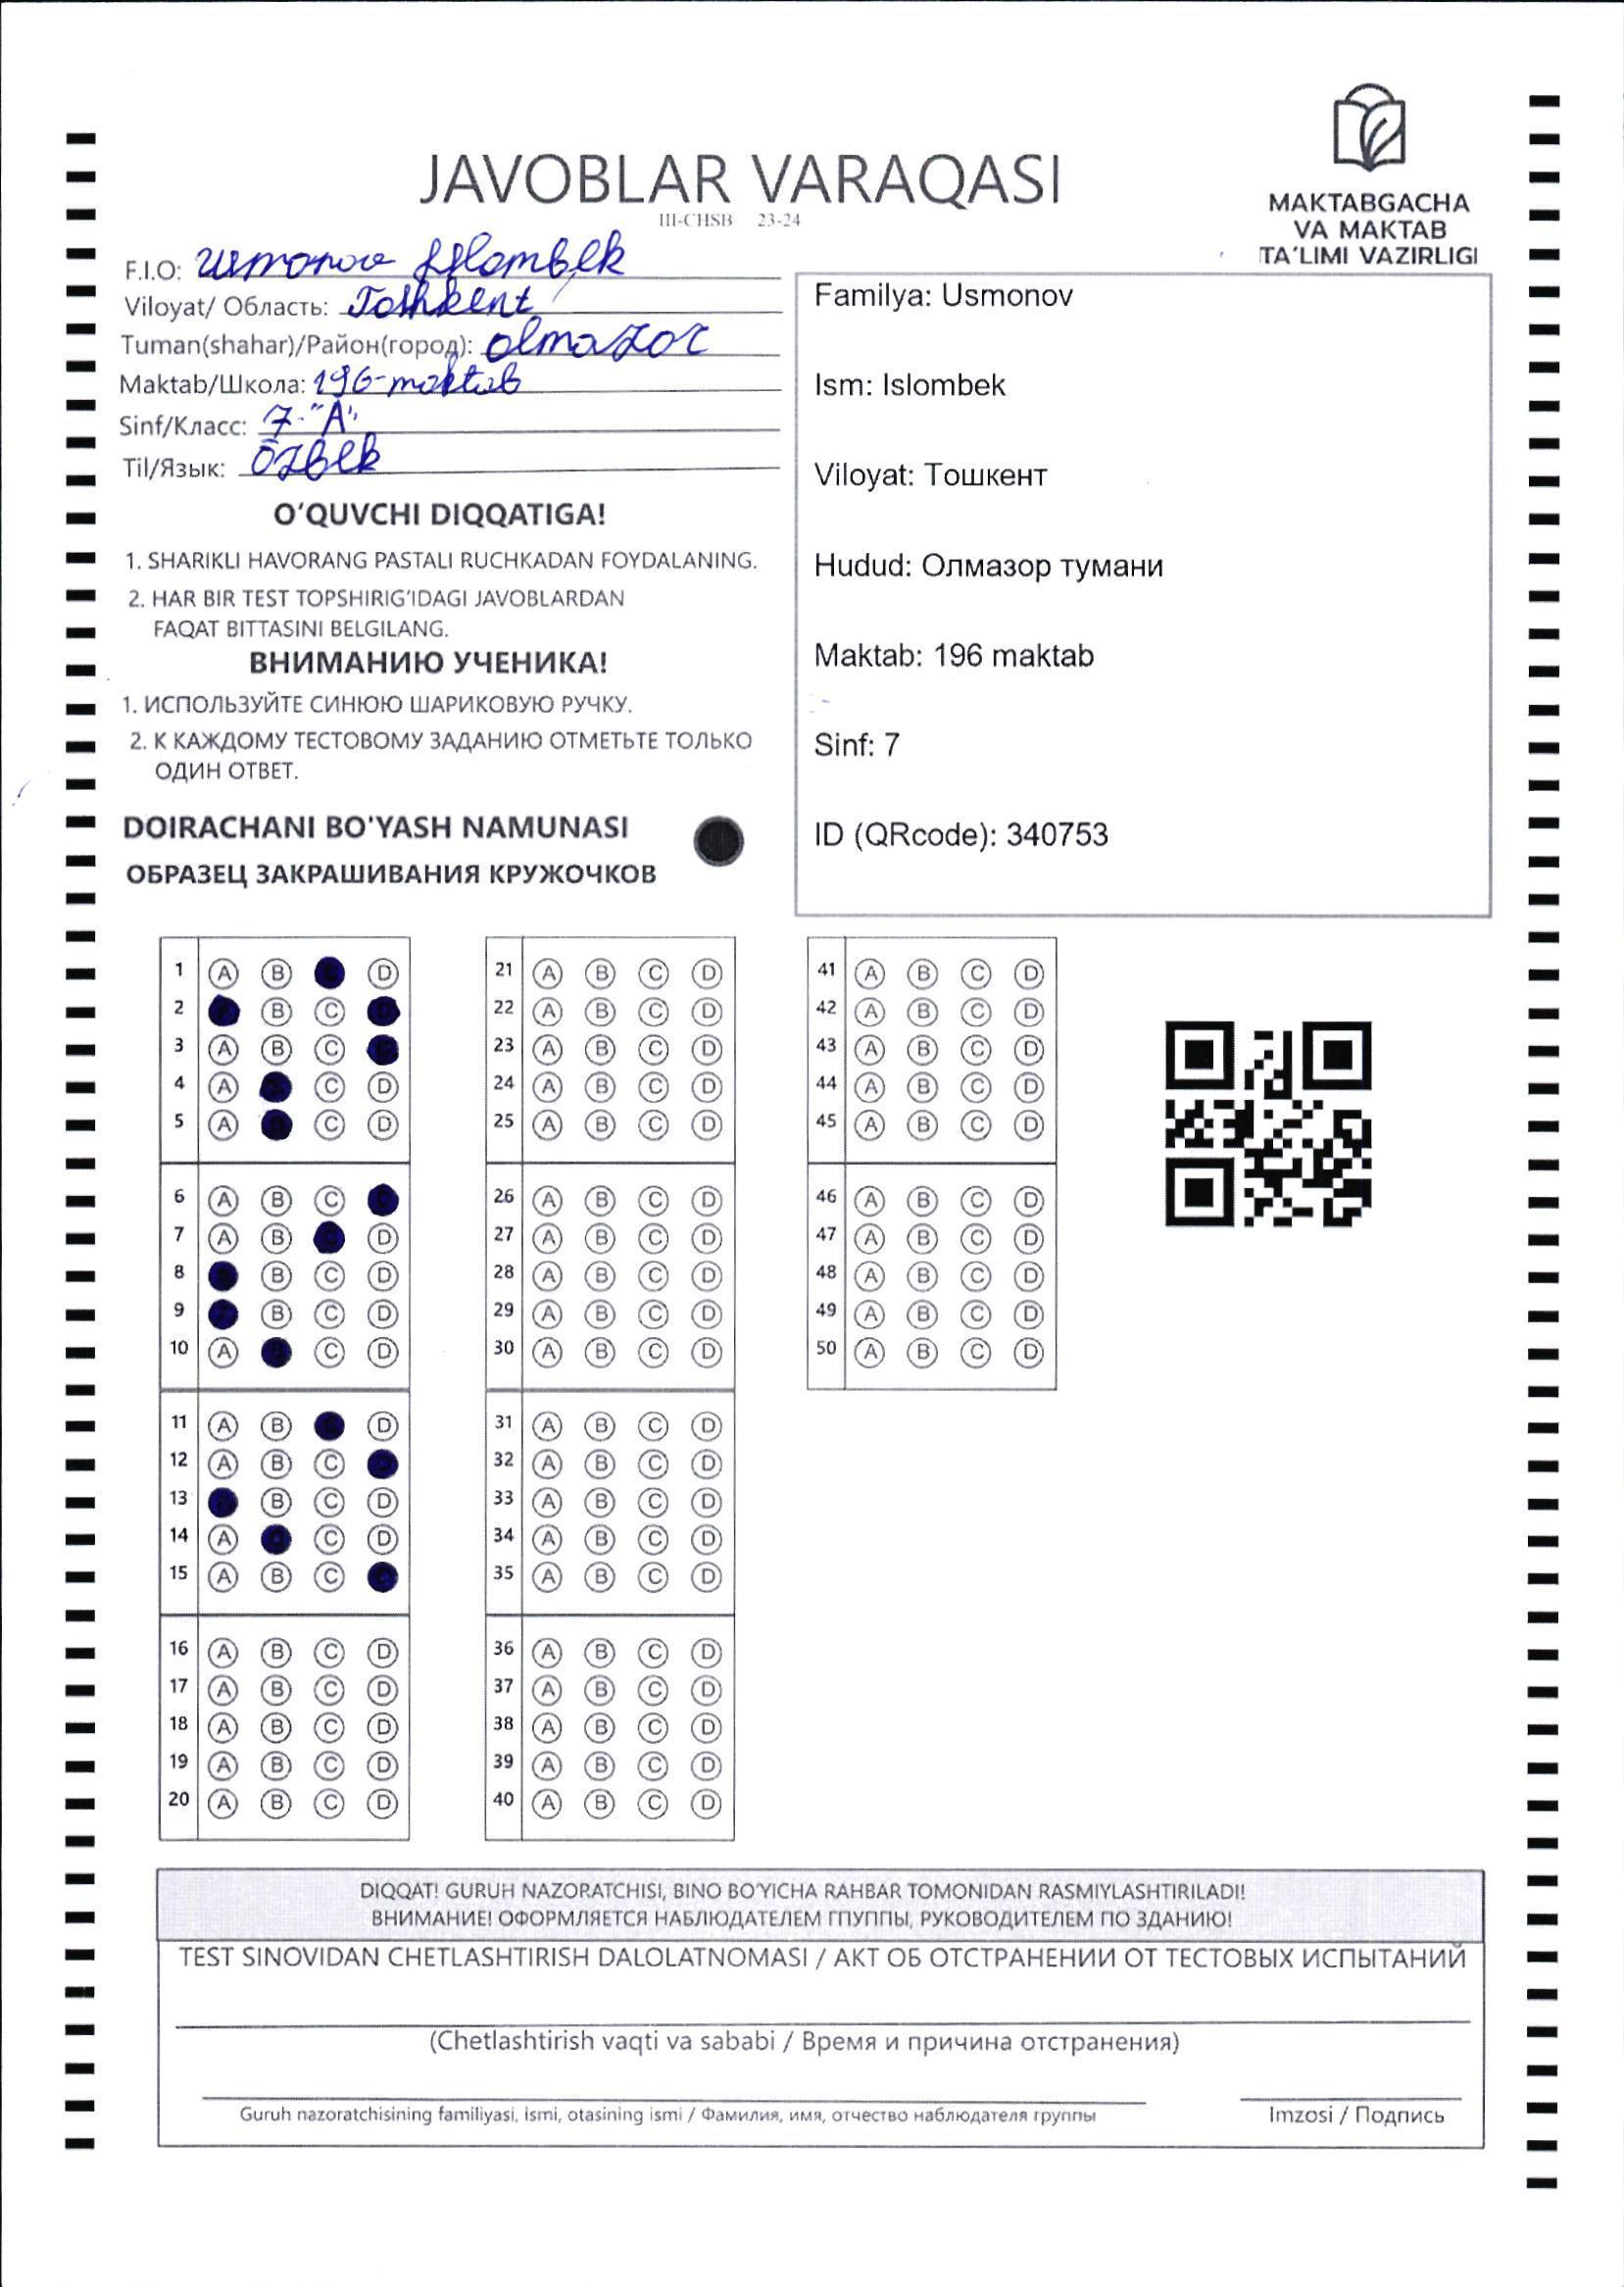 JAVOBLAR VARAQASI
III-CHSB 23-24
MAKTABGACHA
VA MAKTAB
TA'LIMI VAZIRLIGI
F.I.O: Usmonov Islombek
Viloyat/ Область: Toshkent
Tuman(shahar)/Район(город): olmazor
Maktab/Школа: 196-maktab
Sinf/Класс: 7-"A"
Til/Язык: Özbek
O'QUVCHI DIQQATIGA!
1. SHARIKLI HAVORANG PASTALI RUCHKADAN FOYDALANING.
2. HAR BIR TEST TOPSHIRIG'IDAGI JAVOBLARDAN
FAQAT BITTASINI BELGILANG.
ВНИМАНИЮ УЧЕНИКА!
1. ИСПОЛЬЗУЙТЕ СИНЮЮ ШАРИКОВУЮ РУЧКУ.
2. К КАЖДОМУ ТЕСТОВОМУ ЗАДАНИЮ ОТМЕТЬТЕ ТОЛЬКО
ОДИН ОТВЕТ.
DOIRACHANI BO'YASH NAMUNASI
ОБРАЗЕЦ ЗАКРАШИВАНИЯ КРУЖОЧКОВ
Familya: Usmonov
Ism: Islombek
Viloyat: Тошкент
Hudud: Олмазор тумани
Maktab: 196 maktab
Sinf: 7
ID (QRcode): 340753
1 A B D
2 B C
3 A B C
4 A C D
5 A C D
6 A B C
7 A B D
8 B C D
9 B C D
10 A C D
11 A B D
12 A B C
13 B C D
14 A C D
15 A B C
16 A B C D
17 A B C D
18 A B C D
19 A B C D
20 A B C D
21 A B C D
22 A B C D
23 A B C D
24 A B C D
25 A B C D
26 A B C D
27 A B C D
28 A B C D
29 A B C D
30 A B C D
31 A B C D
32 A B C D
33 A B C D
34 A B C D
35 A B C D
36 A B C D
37 A B C D
38 A B C D
39 A B C D
40 A B C D
41 A B C D
42 A B C D
43 A B C D
44 A B C D
45 A B C D
46 A B C D
47 A B C D
48 A B C D
49 A B C D
50 A B C D
DIQQAT! GURUH NAZORATCHISI, BINO BO'YICHA RAHBAR TOMONIDAN RASMIYLASHTIRILADI!
ВНИМАНИЕ! ОФОРМЛЯЕТСЯ НАБЛЮДАТЕЛЕМ ГПУППЫ, РУКОВОДИТЕЛЕМ ПО ЗДАНИЮ!
TEST SINOVIDAN CHETLASHTIRISH DALOLATNOMASI / АКТ ОБ ОТСТРАНЕНИИ ОТ ТЕСТОВЫХ ИСПЫТАНИЙ
(Chetlashtirish vaqti va sababi / Время и причина отстранения)
Guruh nazoratchisining familiyasi, ismi, otasining ismi / Фамилия, имя, отчество наблюдателя группы
Imzosi / Подпись